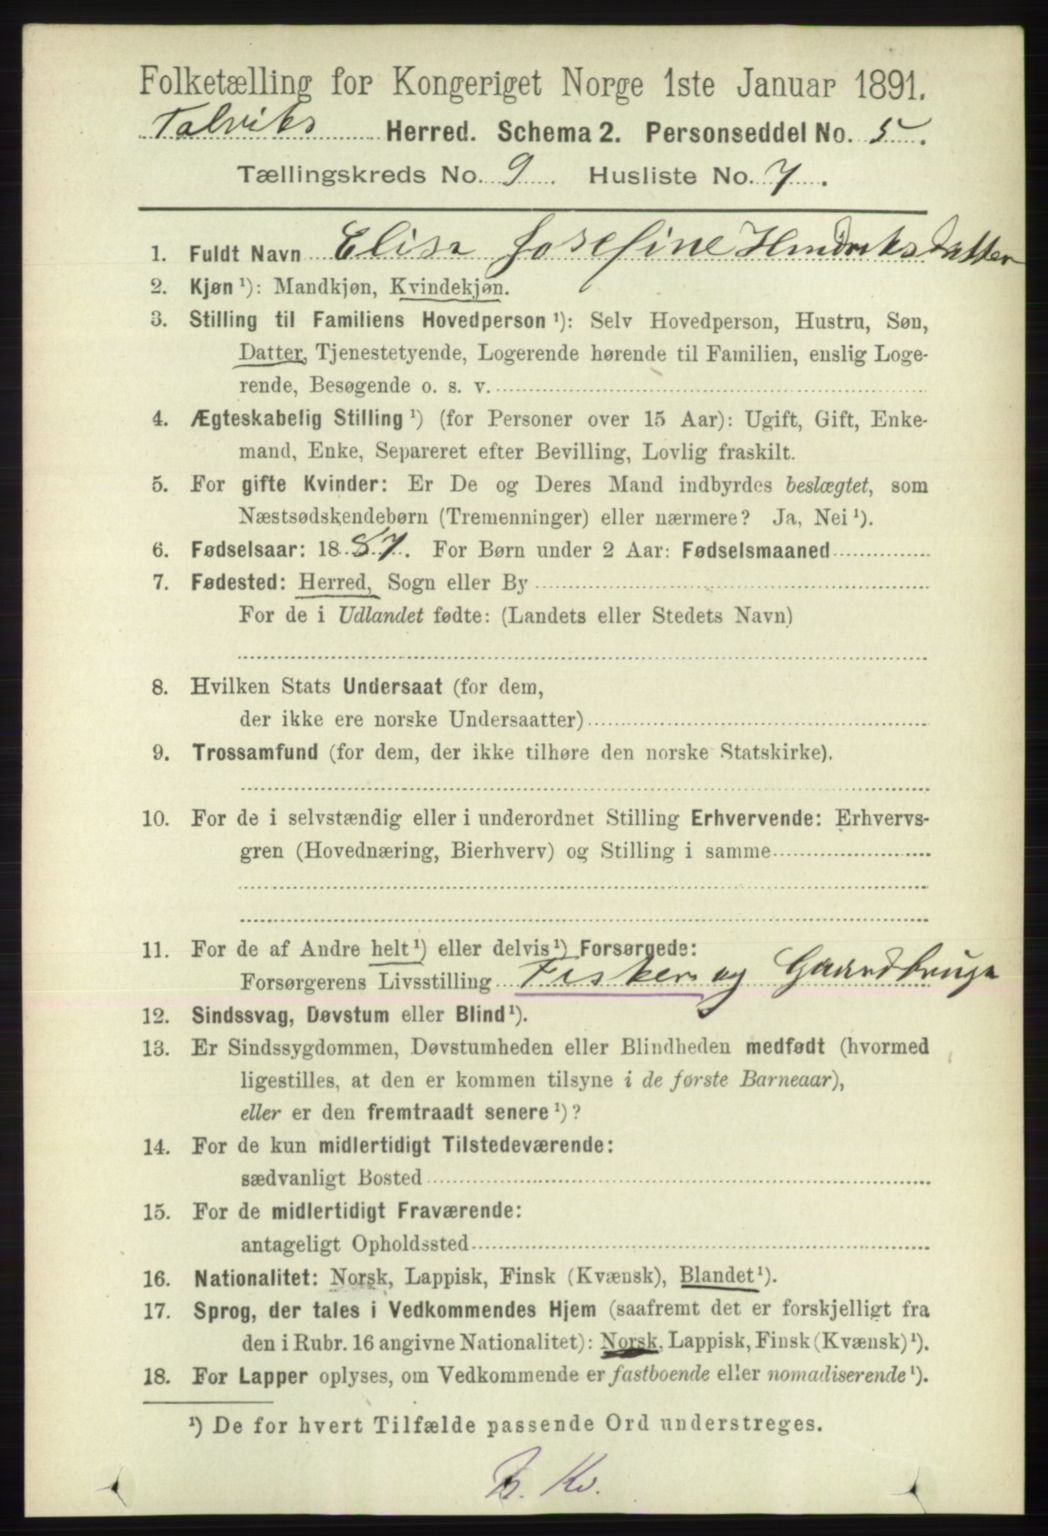 Folketælling for Kongeriget Norge 1ste Januar 1891.
Talviks Herred. Schema 2. Personseddel No. 5.
Tællingskreds No. 9. Husliste No. 7.
1. Fuldt Navn Elisa Josefine Hendriksdatter
2. Kjøn ¹): Mandkjøn, Kvindekjøn.
3. Stilling til Familiens Hovedperson ¹): Selv Hovedperson, Hustru, Søn,
Datter, Tjenestetyende, Logerende hørende til Familien, enslig Loge-
rende, Besøgende o. s. v.
4. Ægteskabelig Stilling ¹) (for Personer over 15 Aar): Ugift, Gift, Enke-
mand, Enke, Separeret efter Bevilling, Lovlig fraskilt.
5. For gifte Kvinder: Er De og Deres Mand indbyrdes beslægtet, som
Næstsødskendebørn (Tremenninger) eller nærmere? Ja, Nei ¹).
6. Fødselsaar: 1887. For Børn under 2 Aar: Fødselsmaaned
7. Fødested: Herred, Sogn eller By
For de i Udlandet fødte: (Landets eller Stedets Navn)
8. Hvilken Stats Undersaat (for dem,
der ikke ere norske Undersaatter)
9. Trossamfund (for dem, der ikke tilhøre den norske Statskirke).
10. For de i selvstændig eller i underordnet Stilling Erhvervende: Erhvervs-
gren (Hovednæring, Bierhverv) og Stilling i samme
11. For de af Andre helt ¹) eller delvis ¹) Forsørgede:
Forsørgerens Livsstilling Fisker og Gaardbruge
12. Sindssvag, Døvstum eller Blind ¹).
13. Er Sindssygdommen, Døvstumheden eller Blindheden medfødt (hvormed
ligestilles, at den er kommen tilsyne i de første Barneaar),
eller er den fremtraadt senere ¹)?
14. For de kun midlertidigt Tilstedeværende:
sædvanligt Bosted
15. For de midlertidigt Fraværende:
antageligt Opholdssted
16. Nationalitet: Norsk, Lappisk, Finsk (Kvænsk), Blandet ¹).
17. Sprog, der tales i Vedkommendes Hjem (saafremt det er forskjelligt fra
den i Rubr. 16 angivne Nationalitet): Norsk, Lappisk, Finsk (Kvænsk) ¹).
18. For Lapper oplyses, om Vedkommende er fastboende eller nomadiserende ¹).
¹) De for hvert Tilfælde passende Ord understreges.
Kv.